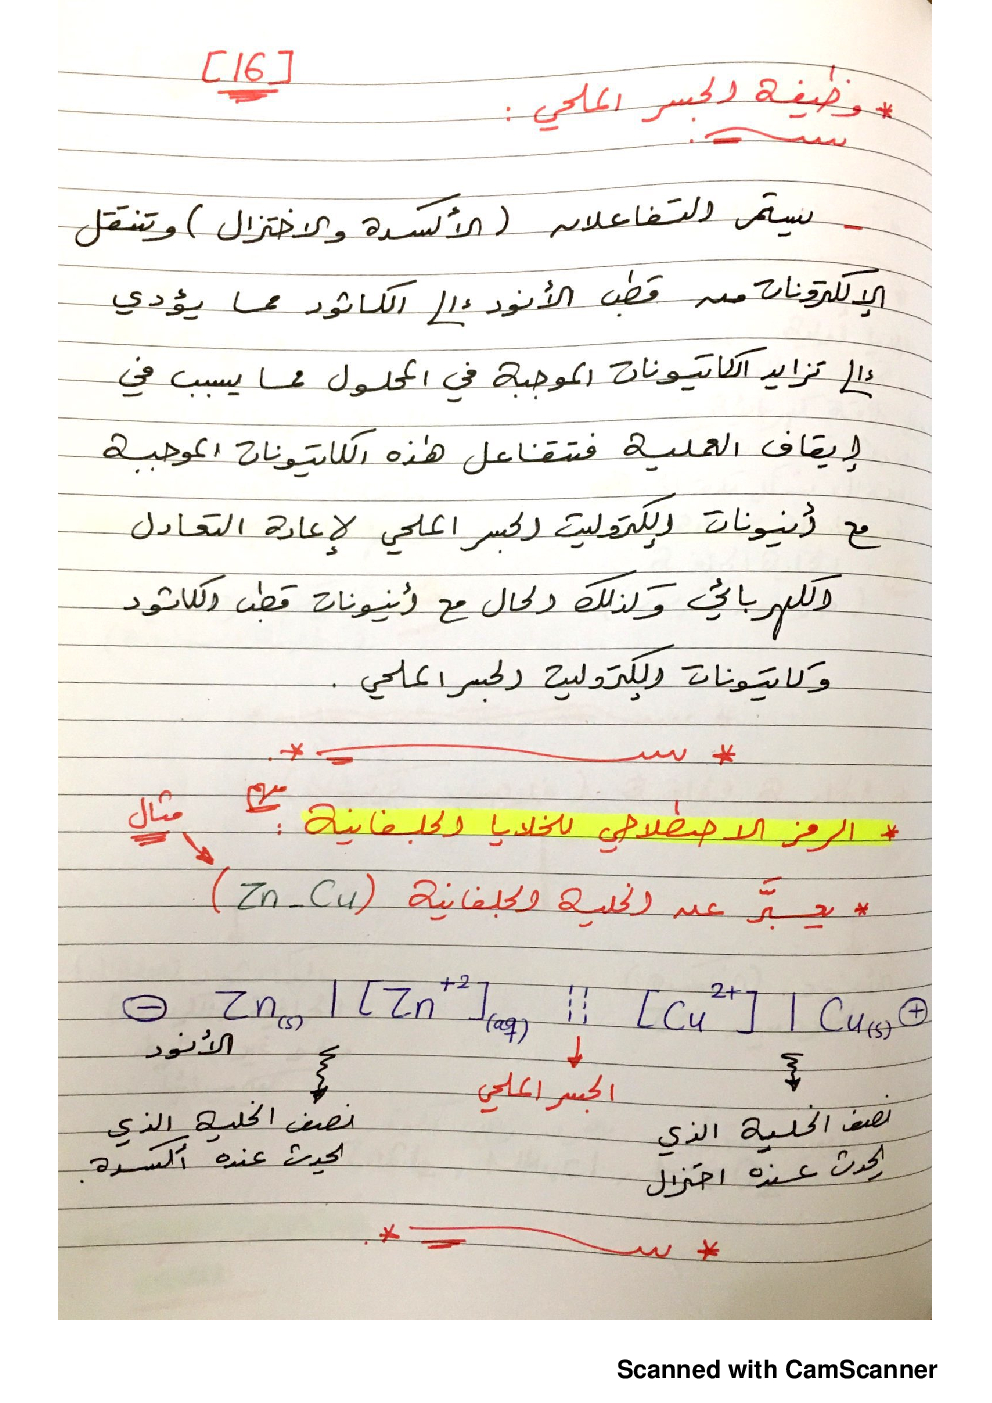 [16]
* وظيفة الجسر الملحي :
- يستمر التفاعلان (الأكسدة والاختزال) وتنتقل
الإلكترونات من قطب الأنود إلى الكاثود مما يؤدي
إلى تزايد الكاتيونات الموجبة في المحلول مما يسبب في
إيقاف العملية فتتفاعل هذه الكاتيونات الموجبة
مع أنيونات إلكتروليت الجسر الملحي لإعادة التعادل
الكهربائي وكذلك الحال مع أنيونات قطب الكاثود
وكاتيونات إلكتروليت الجسر الملحي .
* الرمز الاصطلاحي للخلايا الجلفانية : مهم
مثال
* يعبَّر عن الخلية الجلفانية (Zn-Cu)
⊖ Zn(s) | [Zn+2](aq) ¦¦ [Cu2+] | Cu(s) ⊕
الأنود
الجسر الملحي
نصف الخلية الذي
يحدث عنده أكسدة .
نصف الخلية الذي
يحدث عنده اختزال
Scanned with CamScanner